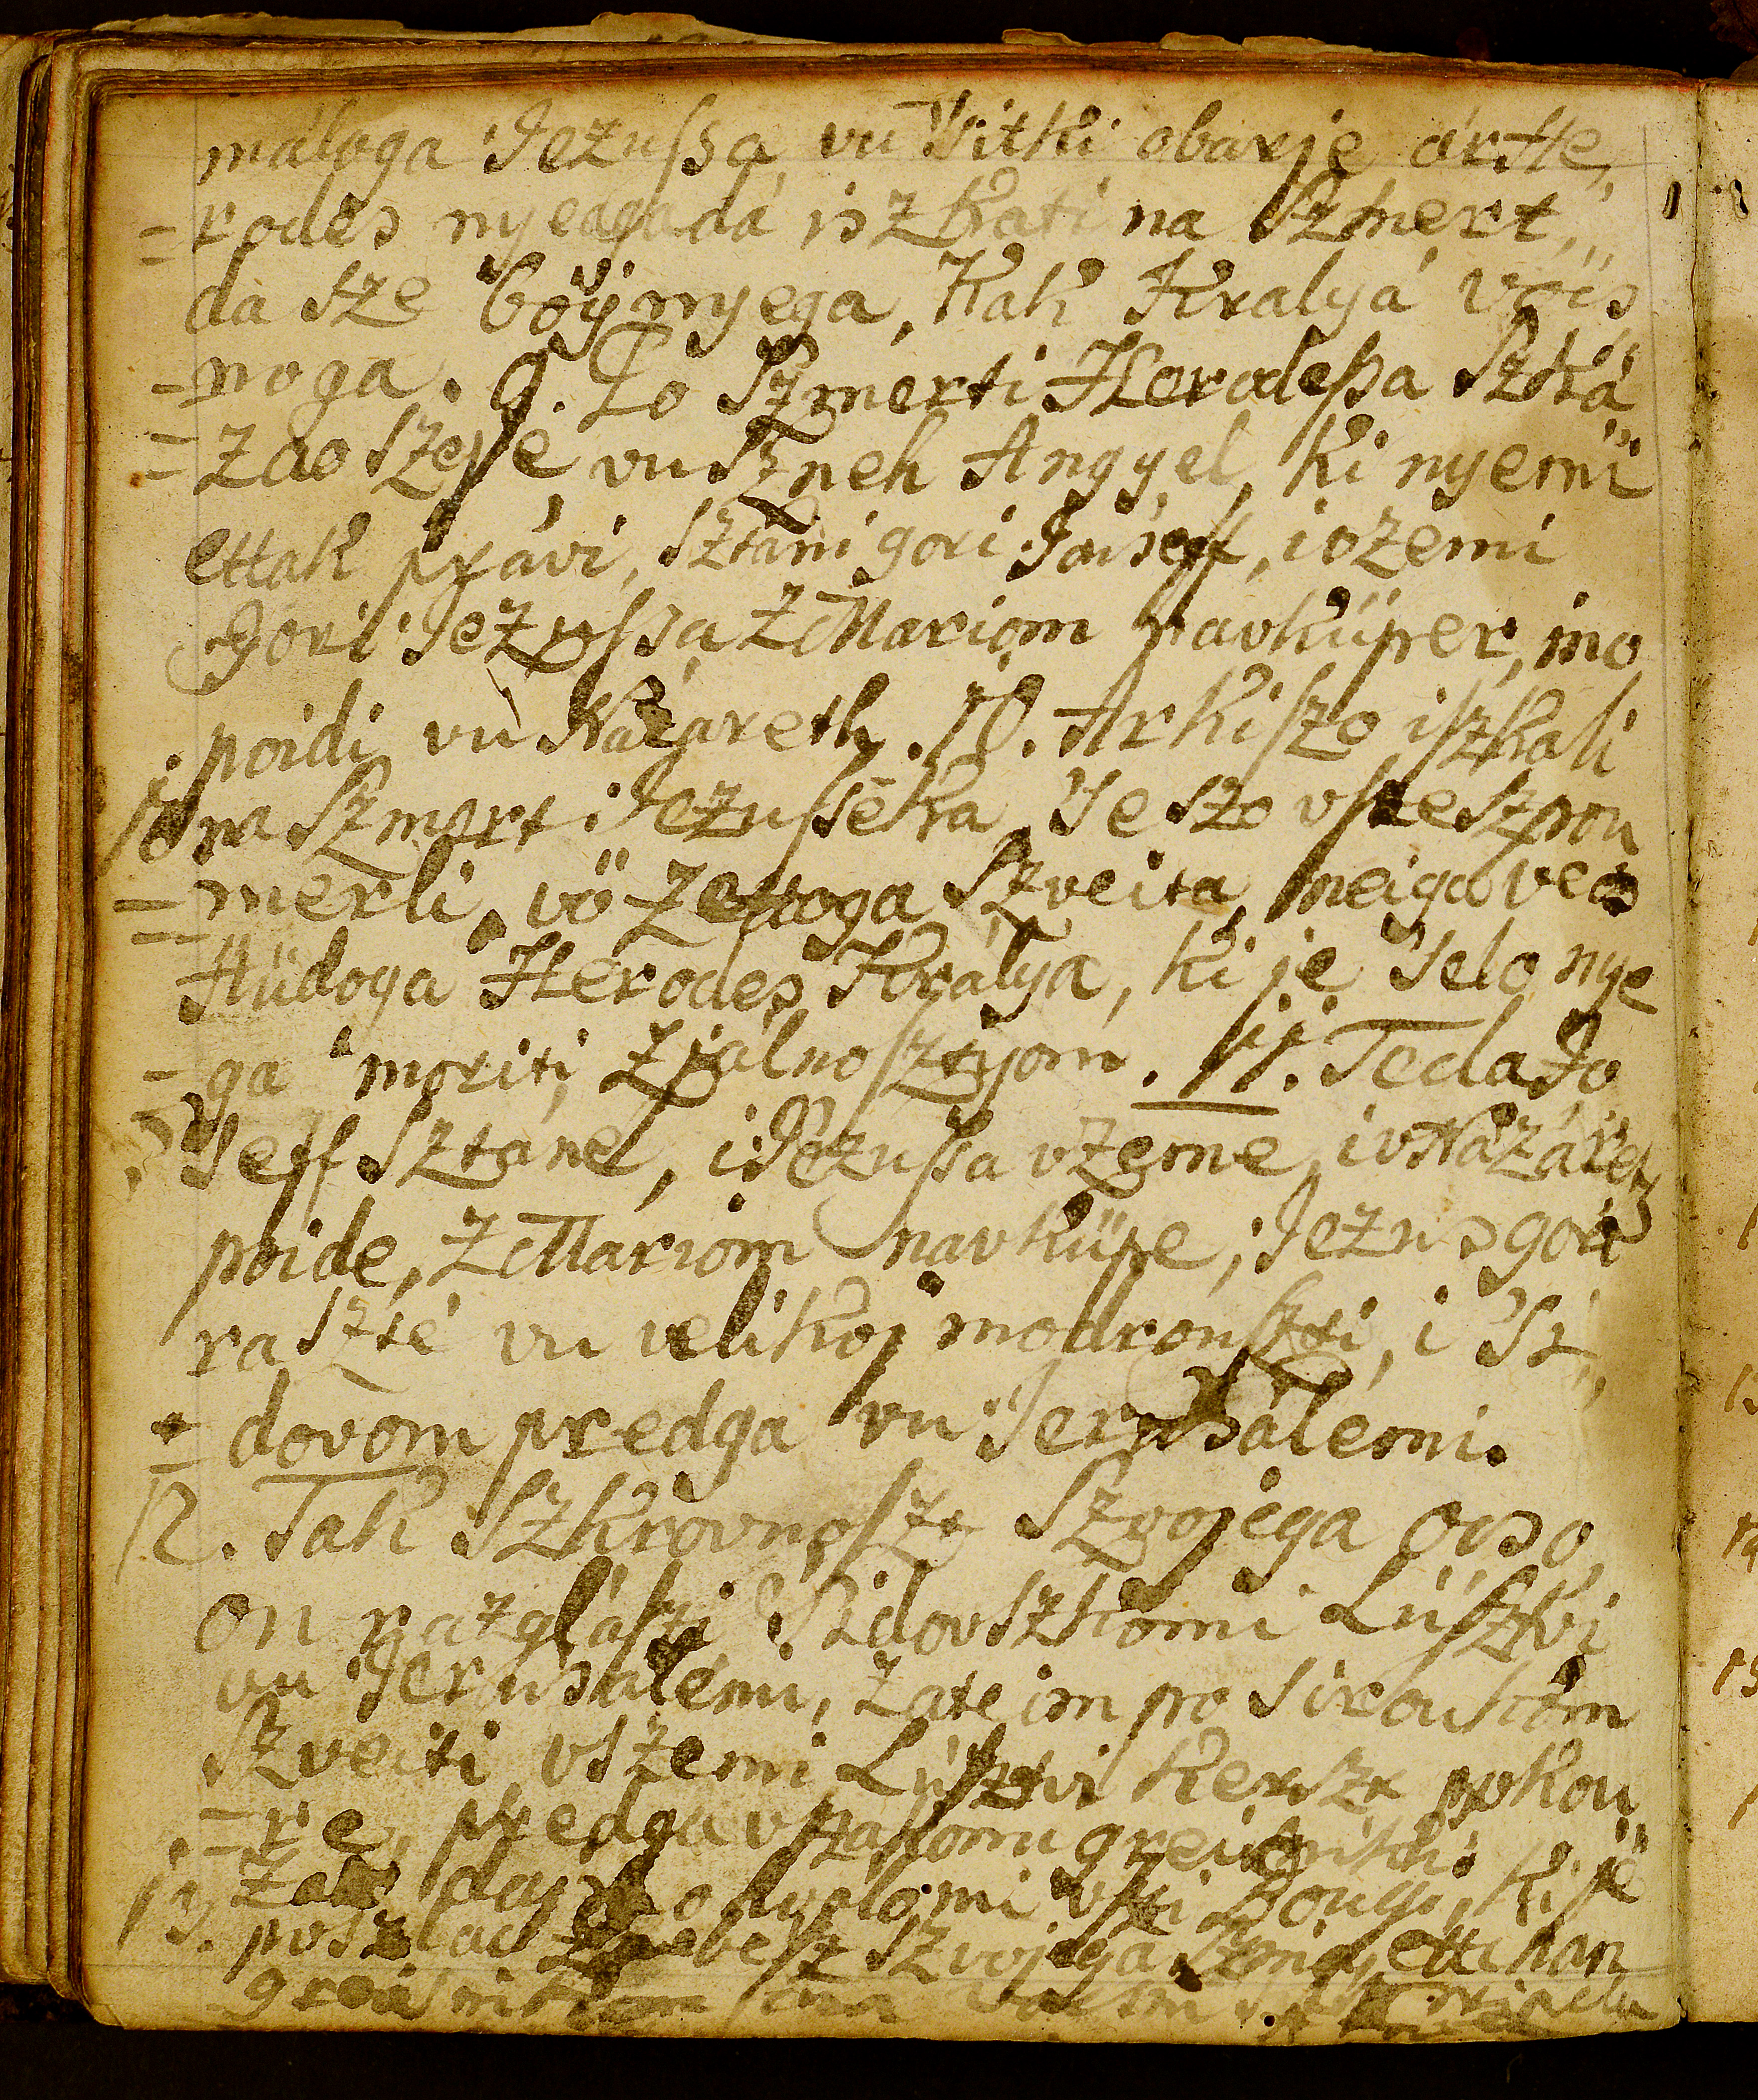 máloga Jezussa, vu Sitki obarje, ár He,
=rodes nyega dá iszkati na Szmert,
da sze boÿ nyega, kak Kralyá vöis
=noga. 9. Po Szmerti Herodessa Szká
=zao sze je vu Szneh Angyel, ki nyemi
ettak právi, sztani gori Joúseff, i vzemi
Gori Jezussa Z Mariom navküper, ino
poidi vu Nazareth. 10. Ár ki szo iszkali
10 na Szmert Jezusseka, Je szo vsze szpou
=merli, vö z ettoga Szveita, meiga vcás
Hüdoga Herodes Králya, ki je Stelo nye
=ga moriti, z jálnosztyom. 11. Teda Jo
Seff Sztáne, i Jezussa vzeme, i v Názáret
poide, Z Mariom navküpe, Jezus gori
raszté vu velikoj modrouszti, i Si,
=dovom predga vu Jerusálemi.
12. Tak Szkrovnoszt Szvojega ocso,
on razglászi Sidovszkomi Lüsztvi
vu Jerusálemi, Zateim po siroukom
Szveiti, vszemi Lüsztvi kerszt pokou,
=re, predga vszakomi greisniki.
13. poszlao z nebész Szvojega Sziná, ettikan